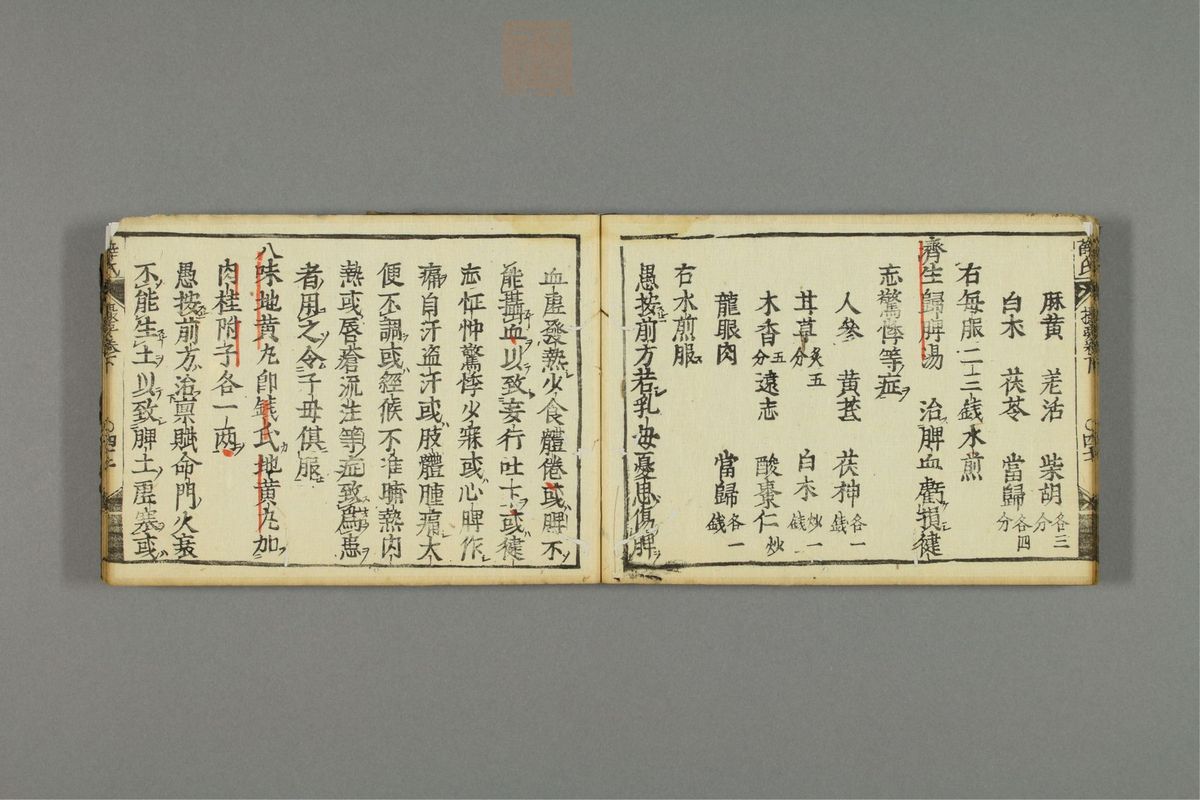 麻黄 羌活 柴胡各三分
白朮 茯苓 當歸各四分
右每服二三錢水煎
濟生歸脾湯 治脾血虧損健
忘驚悸等症
人參 黄芪 茯神各一錢
甘草炙五分 白朮炒一錢
木香五分 遠志 酸棗仁炒
龍眼肉 當歸各一錢
右水煎服
愚按前方若乳母憂思傷脾
血虛發熱少食體倦或脾不
能攝血以致妄行吐下或健
忘怔忡驚悸少寐或心脾作
痛自汗盗汗或肢體腫痛大
便不調或經候不准晡熱内
熱或唇瘡流注等症致爲患
者用之令子母俱服
八味地黄丸即錢氏地黄丸加
肉桂附子各一兩
愚按前方治禀賦命門火衰
不能生土以致脾土虛寒或